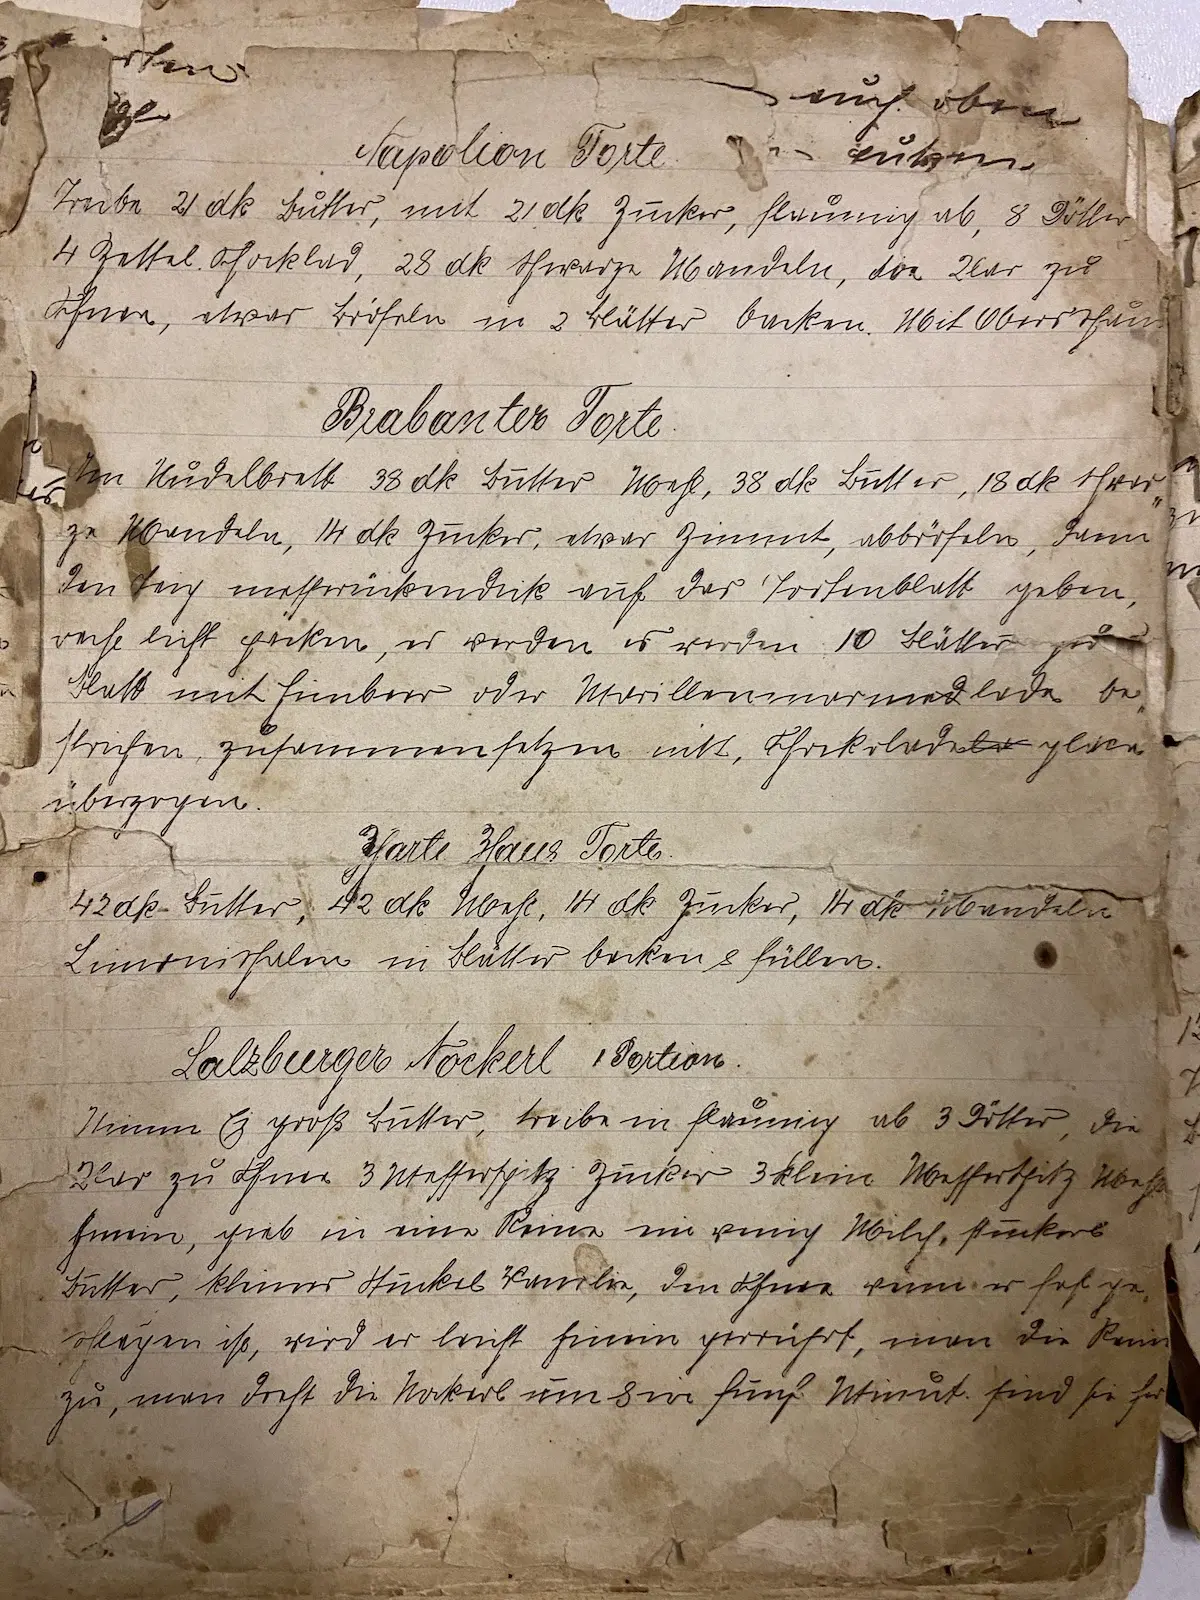 auch oben
Napolion Torte.
Treibe 21 dk Butter, mit 21 dk Zucker, flaumig ab, 8 Dötter
4 Zettel Schocklad, 28 dk schwarze Mandeln, die Klar zu
Schnee, etwas Bröseln in 2 Blätter backen. Mit Obersschaum
Brabanter Torte.
Am Nudelbrett 38 dk Butter Mehl, 38 dk Butter, 18 dk schwar„
ze Mandeln, 14 dk Zucker, etwas Zimmt, abbröseln, dann
den Teig messerrückendick auf das Tortenblatt geben,
recht licht packen, es werden es werden 10 Blätter
Blatt mit Himbeer oder Marillenmarmedlade be„
strichen, zusammensetzen mitt, Schokolade glace
überzogen.
Zarte Haus Torte.
42 dk Butter, 42 dk Mehl, 14 dk Zucker, 14 dk Mandeln
Limonischalen in Blätter backen & füllen.
Salzburger Nockerl 1 Portion.
Nimm Ei groß Butter, treibe in flaumig ab 3 Dötter, die
Klar zu Schnee 3 Messerspitz Zucker 3 klein Messerspitz Mehl
hinein, gieb in eine Reine ein wenig Milch, stückerl
Butter, kleines Stückel Vanilie, den Schnee wenn er fest ge„
schlagen ist, wird er leicht hinein gerrührt, man die Rein
zu, man dreht die Nockerl um & in fünf Minut. sind sie